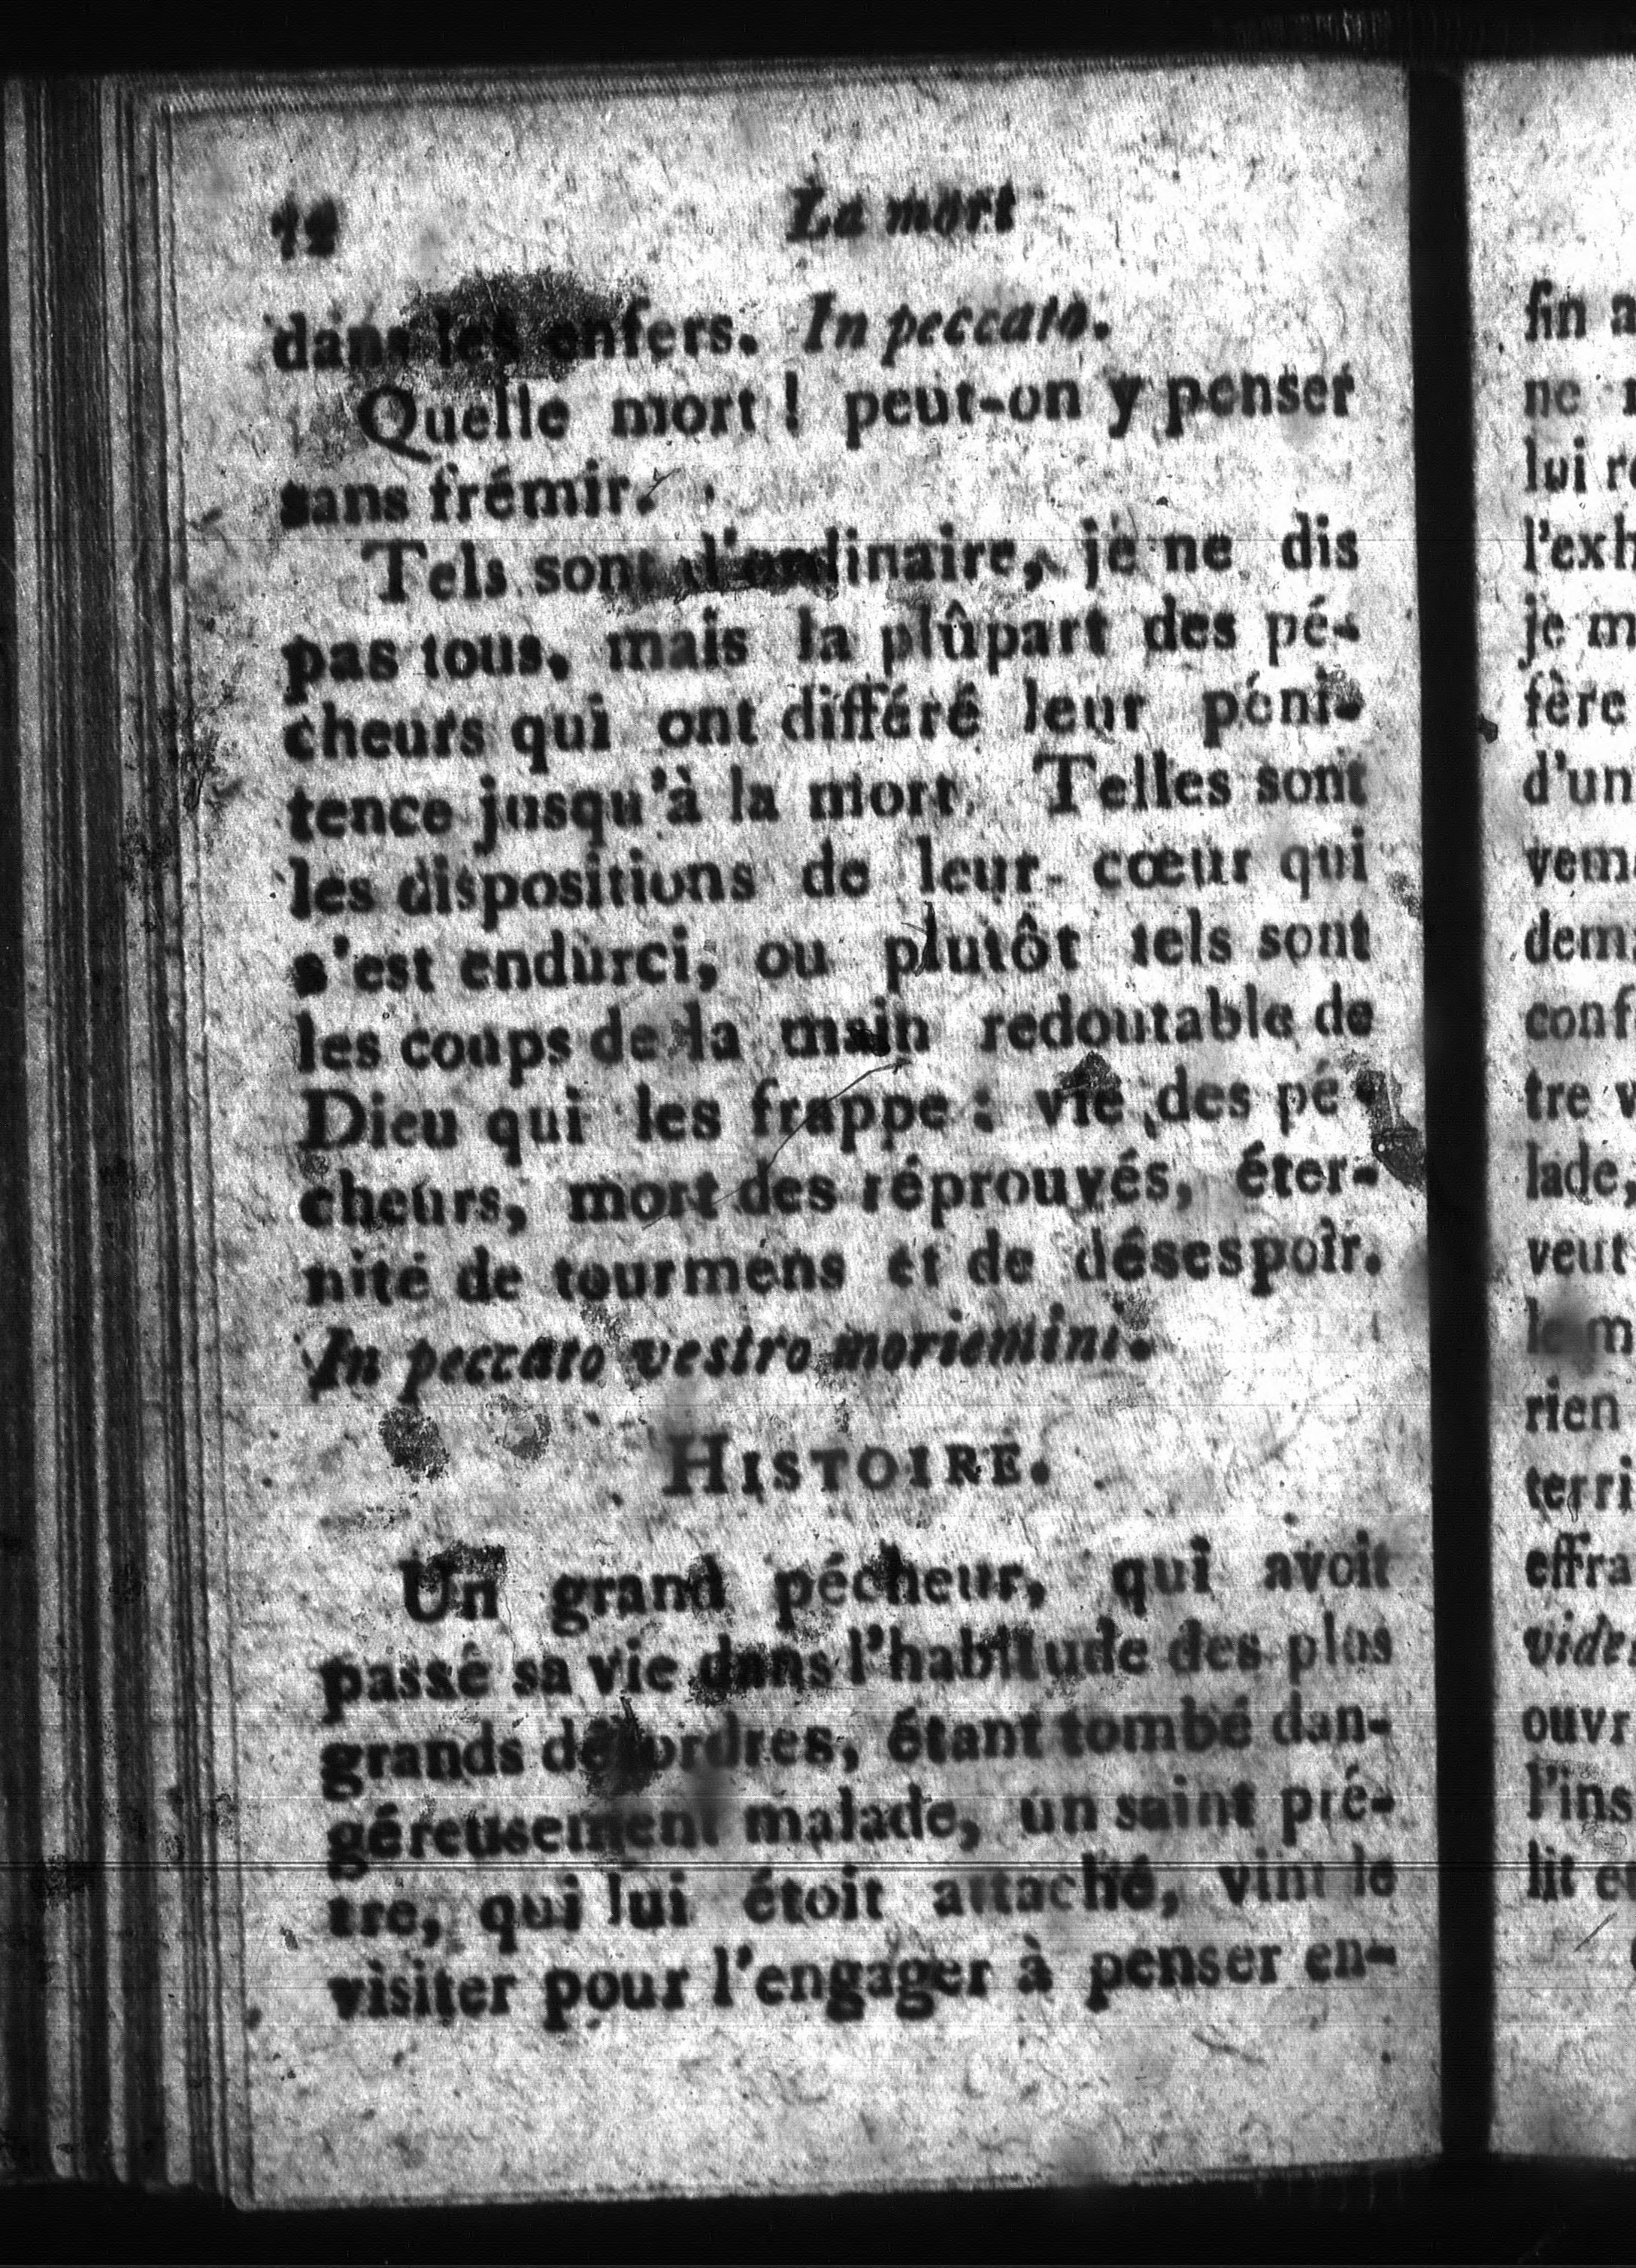 12 La mort
dans les enfers. In peccato.
Quelle mort ! peut-on y penser
sans frémir.
Tels sont d'ordinaire, je ne dis
pas tous, mais la plûpart des pé-
cheurs qui ont différé leur péni-
tence jusqu'à la mort. Telles sont
les dispositions de leur cœur qui
s'est endurci, ou plutôt tels sont
les coups de la main redoutable de
Dieu qui les frappe : vie des pé-
cheurs, mort des réprouvés, éter-
nité de tourmens et de désespoir.
In peccato vestro moriemini.
HISTOIRE.
Un grand pécheur, qui avoit
passé sa vie dans l'habitude des plus
grands désordres, étant tombé dan-
géreusement malade, un saint pré-
tre, qui lui étoit attaché, vint le
visiter pour l'engager à penser en-
fin a
ne
lui
l'exh
je m
fère
d'un
vem
dem
conf
tre v
lade,
veut
le m
rien
terri
effra
vide
ouvr
l'ins
lit e